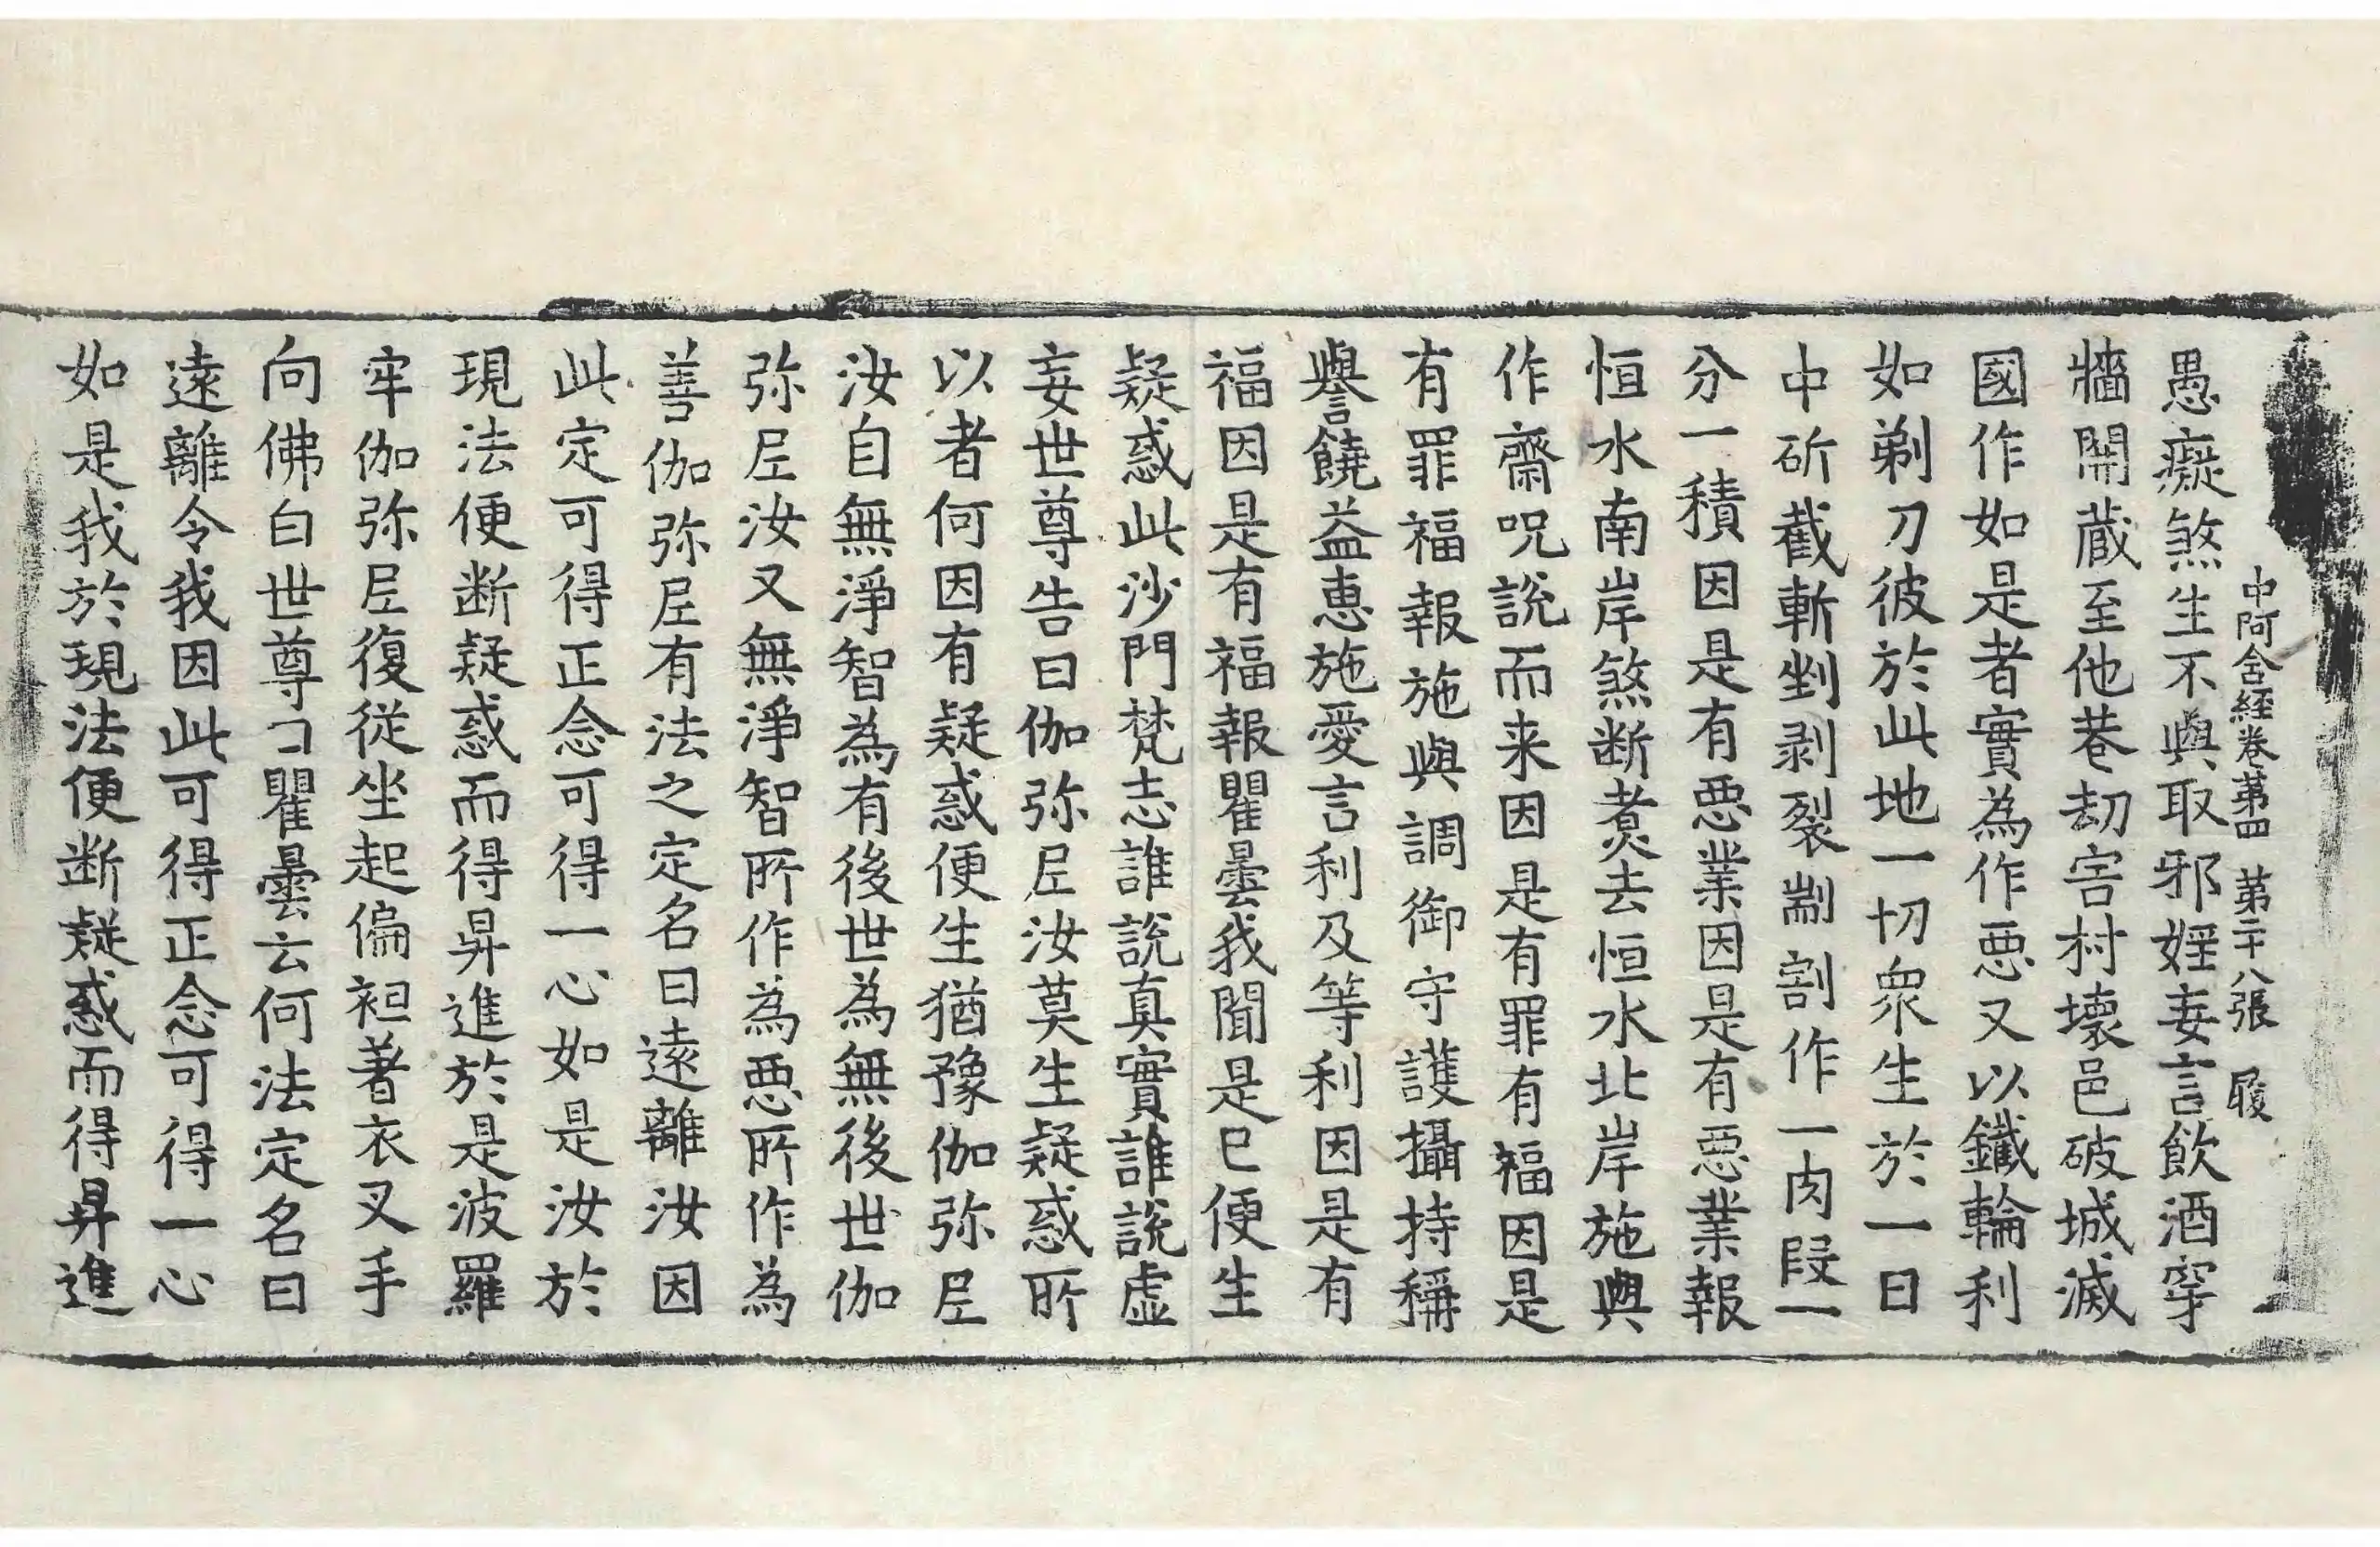 中阿含經卷第四　第二十八張　履
愚癡煞生不與取邪婬妄言飲酒穿
牆開蔵至他巷劫害村壞邑破城滅
國作如是者實為作惡又以鐵輪利
如剃刀彼於此地一切衆生於一日
中斫截斬剉剥裂剬割作一肉段一
分一積因是有惡業因是有惡業報
恒水南岸煞断煮去恒水北岸施與
作齋呪說而来因是有罪有福因是
有罪福報施與調御守護攝持稱
譽饒益惠施愛言利及等利因是有
福因是有福報瞿曇我聞是已便生
疑惑此沙門梵志誰說真實誰說虛
妄世尊告曰伽弥尼汝莫生疑惑所
以者何因有疑惑便生猶豫伽弥尼
汝自無淨智為有後世為無後世伽
弥尼汝又無淨智所作為惡所作為
善伽弥尼有法之定名曰遠離汝因
此定可得正念可得一心如是汝於
現法便断疑惑而得昇進於是波羅
牢伽弥尼復從坐起偏袒著衣叉手
向佛白世尊曰瞿曇云何法定名曰
遠離令我因此可得正念可得一心
如是我於現法便断疑惑而得昇進